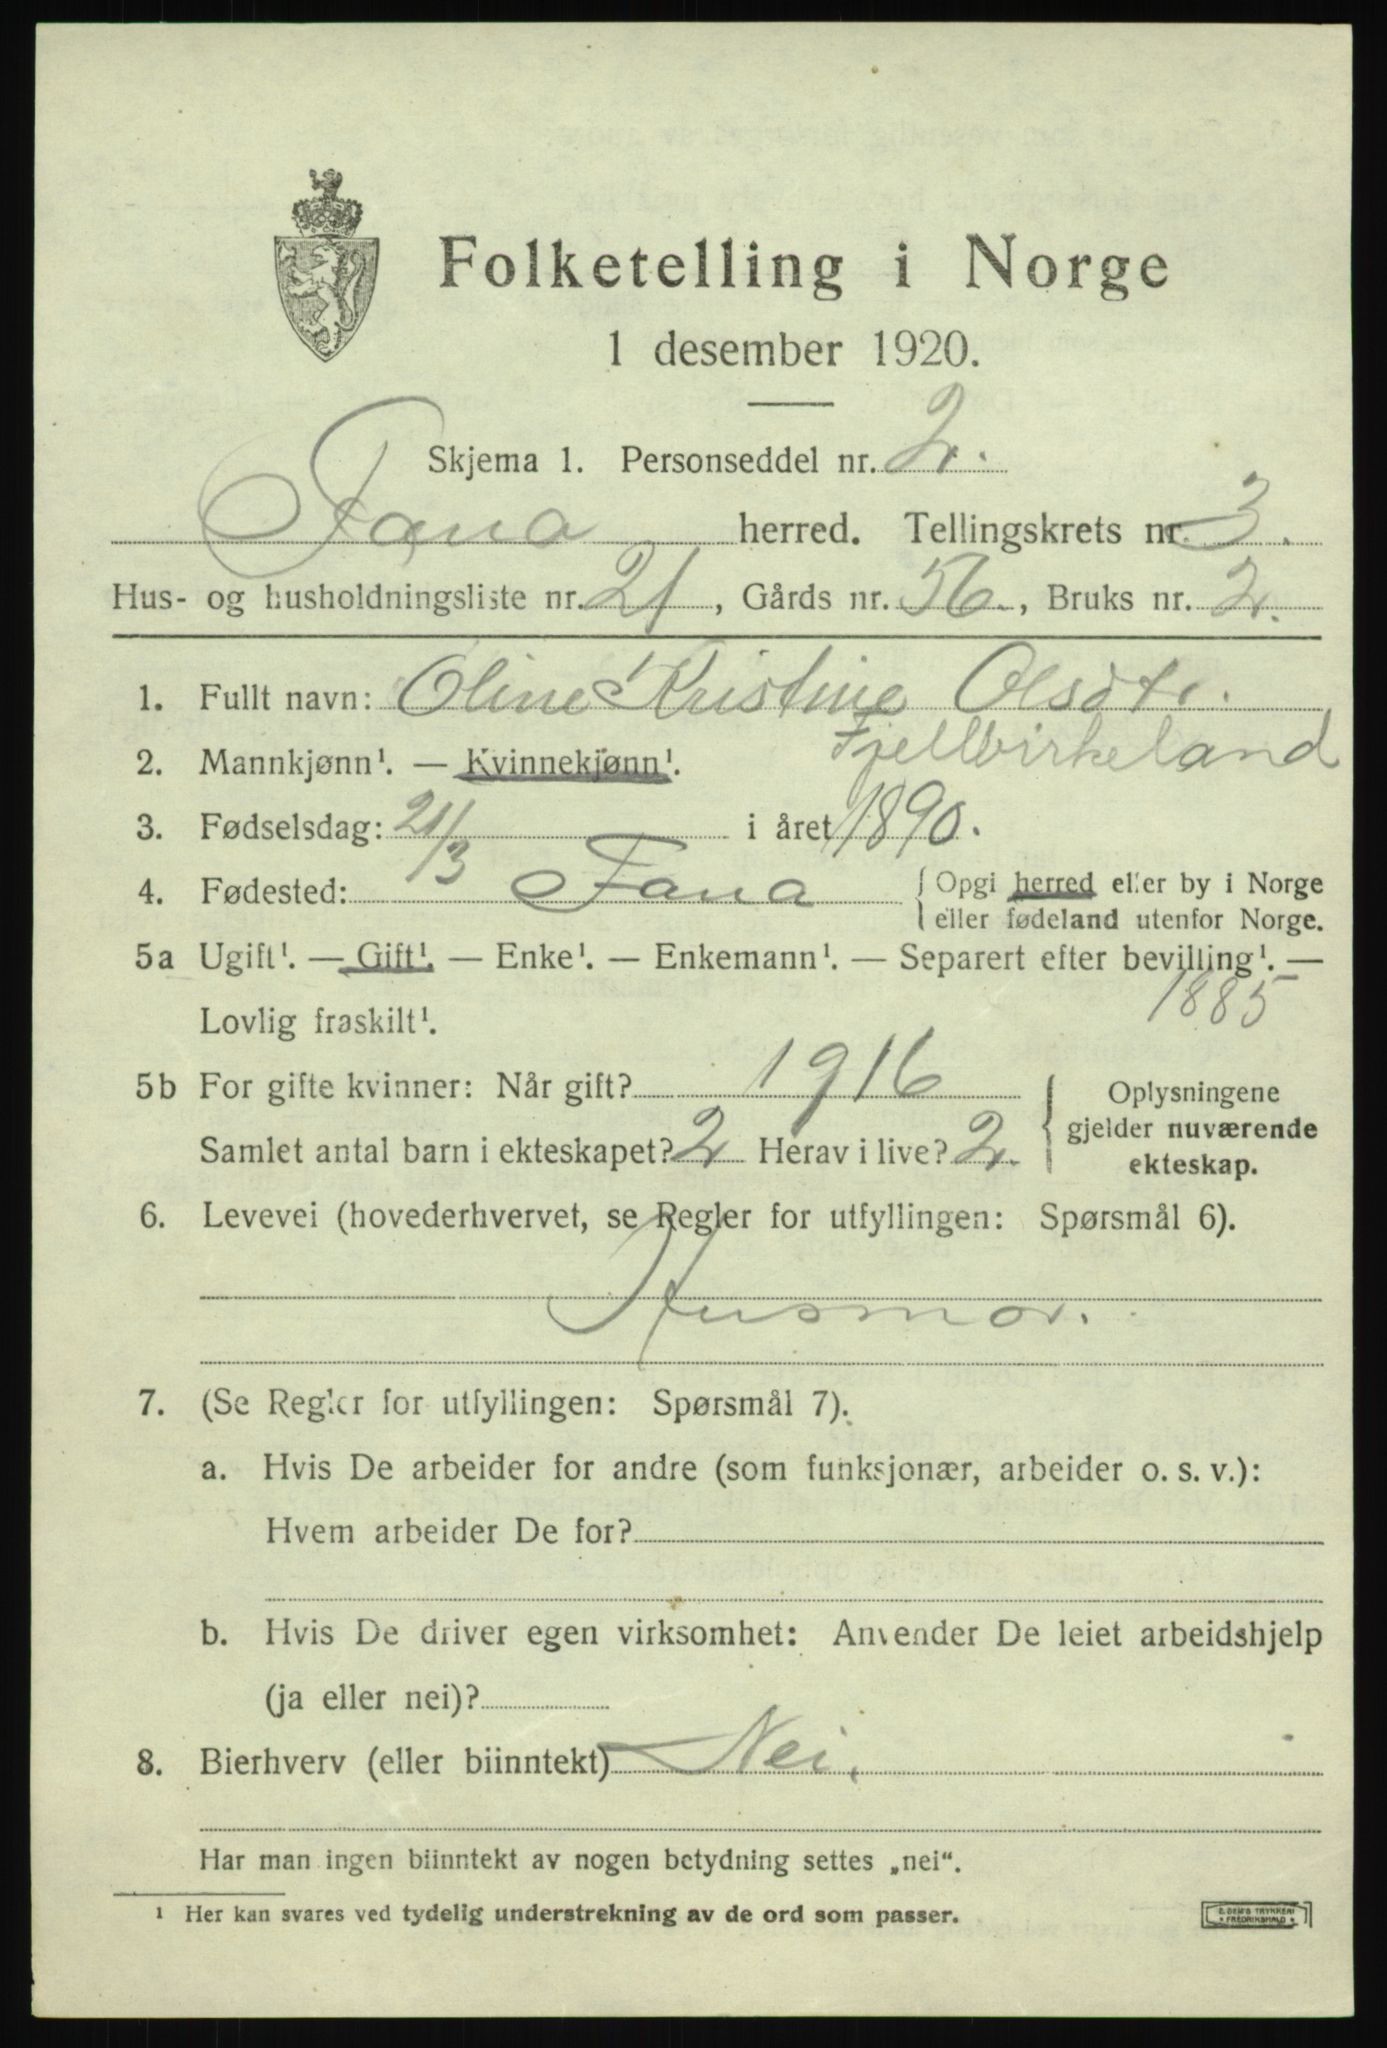 Folketelling i Norge
1 desember 1920.
Skjema 1. Personseddel nr. 2.
Fana herred. Tellingskrets nr. 3.
Hus- og husholdningsliste nr. 21, Gårds nr. 56., Bruks nr. 2.
1. Fullt navn: Oline Kristine Olsdtr.
Fjellbirkeland
2. Mannkjønn¹. — Kvinnekjønn¹.
3. Fødselsdag: 21/3 i året 1890.
4. Fødested: Fana {Opgi herred eller by i Norge
eller fødeland utenfor Norge.
5a Ugift¹. — Gift¹. — Enke¹. — Enkemann¹. — Separert efter bevilling¹. —
Lovlig fraskilt¹. 1885
5b For gifte kvinner: Når gift? 1916
Samlet antal barn i ekteskapet? 2 Herav i live? 2.
{Oplysningene
gjelder nuværende
ekteskap.
6. Levevei (hovederhvervet, se Regler for utfyllingen: Spørsmål 6).
Husmor.
7. (Se Regler for utfyllingen: Spørsmål 7).
a. Hvis De arbeider for andre (som funksjonær, arbeider o. s. v.):
Hvem arbeider De for?
b. Hvis De driver egen virksomhet: Anvender De leiet arbeidshjelp
(ja eller nei)?
8. Bierhverv (eller biinntekt) Nei.
Har man ingen biinntekt av nogen betydning settes „nei“.
¹ Her kan svares ved tydelig understrekning av de ord som passer.